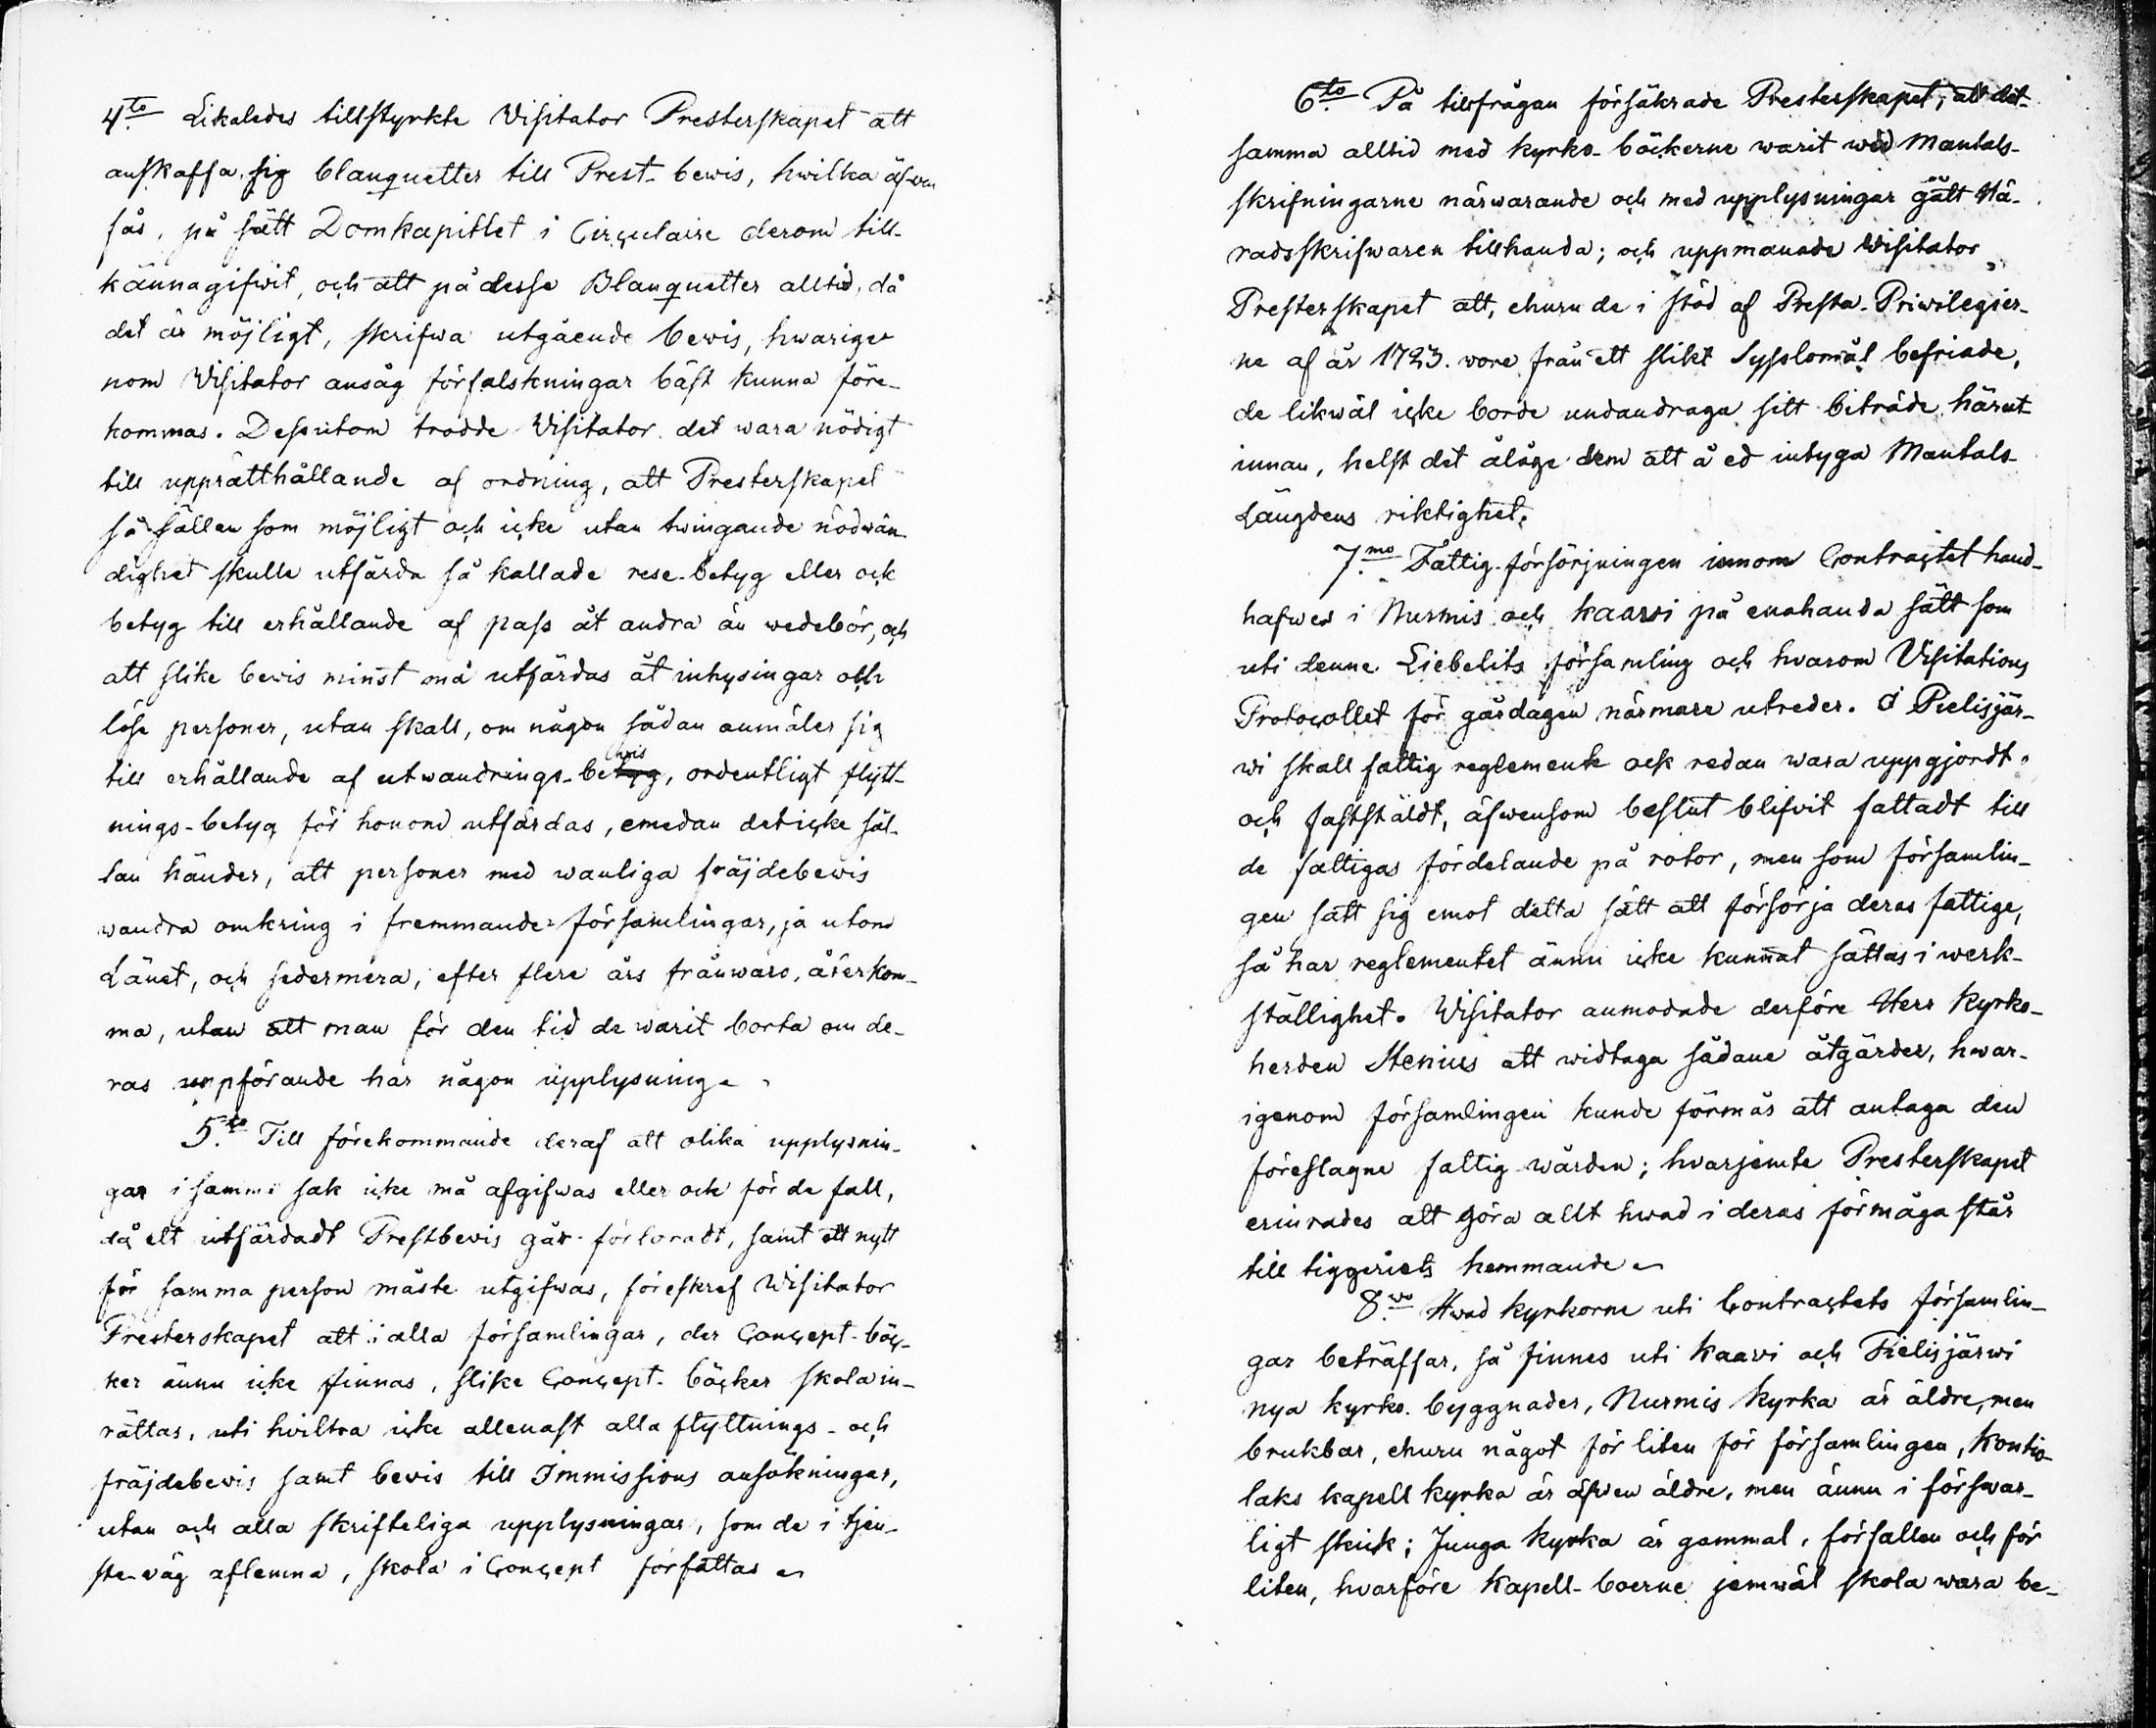 4to Likaledes tillstyrkte Visitator Presterskapet att
anskaffa sig blanquetter till Prest-bewis, hwilka äfwen
fås, på sätt Domkapitlet i Circulaire derom till-
kännagifwit, och att på desse Blanquetter alltid, då
det är möjligt, skrifwa utgående bewis, hwarige-
nom Visitator ansåg förfalskningar bäst kunna före-
kommas. Dessutom trodde Visitator det wara nödigt
till upprätthållande af ordning, att Presterskapet
så sällan som möjligt och icke utan twingande nödwän-
dighet skulle utfärda så kallade rese-betyg eller ock
betyg till erhållande af pass åt andra än wedebör, och
att slike bewis minst må utfärdas åt inhysingar och
löse personer, utan skall, om någon sådan anmäler sig
till erhållande af utwandrings-bewis, ordentligt flytt-
nings-betyg för honom utfärdas, emedan det icke säl-
lan händer, att personer med wanliga fräjdebewis
wandra omkring i fremmande församlingar, ja utom
Länet, och sedermera, efter flere års frånwaro, återkom-
ma, utan att man för den tid de warit borta om de-
ras uppförande har någon upplysning.
5to Till förekommande deraf att olika upplysnin-
gar i samma sak icke må afgifwas eller ock för de fall,
då ett utfärdadt Prestbevis går förloradt, samt ett nytt
för samma person måste utgifwas, föreskref Wisitator
Presterskapet att i alla församlingar, der Concept-böc-
ker ännu icke finnas, slike Concept-böcker skola in-
rättas, uti hvilka icke allenast alla flyttnings- och
fräjdebevis samt bevis till Immissions ansökningar,
utan och alla skrifteliga upplysningar, som de i tjen-
ste väg aflemna, skola i Concept författas
6to På tillfrågan försäkrade Presterskapet, att det-
samma alltid med kyrko-böckerne warit wid Mantals-
skrifningarne närwarande och med upplysningar gått Hä-
radsskrifwaren tillhanda; och uppmanade Wisitator
Presterskapet att, ehuru de i stöd af Presta-Priwilegier-
ne af år 1723. wore från ett slikt Sysslomål befriade,
de likwäl icke borde undandraga sitt biträde härut-
innan, helst det åläge dem att å ed intyga Mantals-
Längdens riktighet.
7mo Fattig-försörjningen innom Contractet hand-
hafwes i Nurmis och Kaavi på enahanda sätt som
uti denne Liebelits församling och hvarom Visitations
Protocollet för gårdagen närmare utreder. I Pielisjär-
wi skall fattig reglemente ock redan wara uppgjordt
och fastställdt, äfwensom beslut blifvit fattadt till
de fattigas fördelande på rotor, men som församlin-
gen satt sig emot detta sätt att försörja deras fattige,
så har reglementet ännu icke kunnat sättas i werk-
ställighet. Wisitator anmodade derföre Herr Kyrko-
herden Stenius att widtaga sådane åtgärder, hwar-
igenom församlingen kunde förmås att antaga den
föreslagne fattig-wården; hvarjemte Presterskapet
erinrades att göra allt hwad i deras förmåga står
till tiggeriets hemmande
8vo Hwad kyrkorne uti Contractets församlin-
gar beträffar, så finnes uti Kaavi och Pielisjärwi
nya kyrko-byggnader, Nurmis kyrka är äldre, men
brukbar, ehuru något för liten för församlingen, Kontio-
laks kapell kyrka är äfwen äldre, men ännu i förswar-
ligt skick; Juuga kyrka är gammal, förfallen och för
liten, hvarföre Kapell-boerne jemwäl skola wara be-